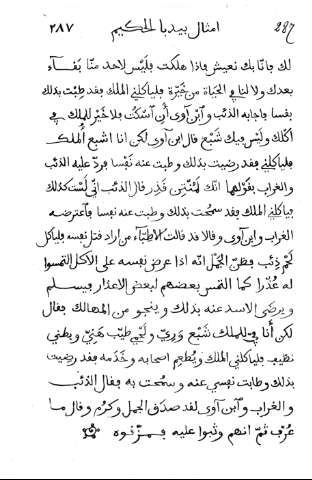 287 امثال بيدبا الحكيم ٢٨٧
لك بانّا بك نعيش فاذا هلكت فليس لاحد منّا بقآء
بعدك ولا لنا في الحياة من خيرة فلياكلني الملك فقد طبت بذلك
نفسا فاجابه الذئب وابن آوى أن اسكت فلا خير للملك في
أكلك وليس فيك شبع قال ابن آوى لكن انا اشبع الملك
فلياكلني فقد رضيت بذلك وطبت عنه نفسا فردّ عليه الذئب
والغراب بقولهما انك لمنتن قذر قال الذئب اني لست كذلك
فياكلني الملك فقد سمحت بذلك وطبت عنه نفسا فاعترضه
الغراب وابن آوى وقالا قد قالت الاطبّآء من اراد قتل نفسه فلياكل
لحم ذئب فظنّ الجمل انه اذا عرض نفسه على الاكل التمسوا
له عُذرا كما التمس بعضهم لبعض الاعذار فيسلم
ويرضى الاسد عنه بذلك وينجو من المهالك فقال
لكن أنا فيّ للملك شبع وريّ ولحمي طيّب هنيّ وبطني
نظيف فلياكلني الملك ويُطعم اصحابه وخدَمه فقد رضيت
بذلك وطابت نفسي عنه وسمحت به فقال الذئب
والغراب وابن آوى لقد صدَق الجمل وكرُم وقال ما
عرَف ثمّ انهم وثبوا عليه فمزّقوه